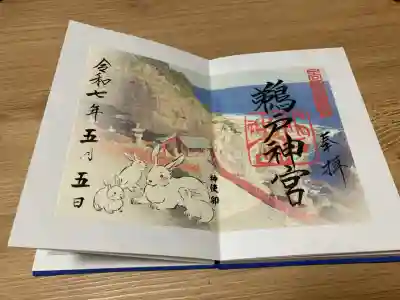 奉拝
鵜戸神宮
神使 卯
令和七年五月五日